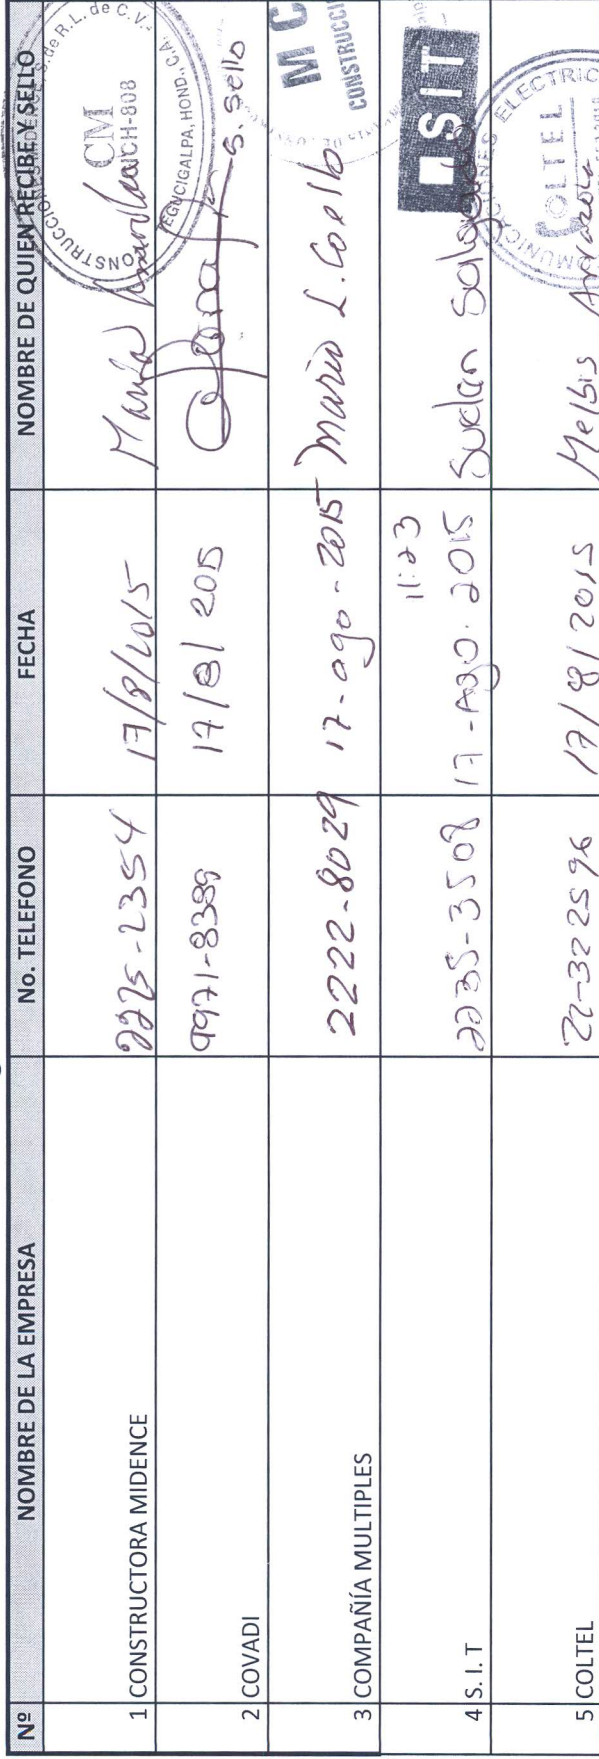 Nº NOMBRE DE LA EMPRESA No. TELEFONO FECHA NOMBRE DE QUIEN RECIBE Y SELLO
1 CONSTRUCTORA MIDENCE 2225-2354 17/8/2015 Maria
CONSTRUCCION S. de R.L. de C.V.
CM
CICH-808
TEGUCIGALPA, HOND., C.A.
2 COVADI 9971-8389 17/8/2015 s. sello
3 COMPAÑÍA MULTIPLES 2222-8029 17-ago-2015 Mario L. Coello
M C
CONSTRUCCI
4 S. I. T 2235-3508 17-Ago. 2015 Suelan
11:23
SIT
5 COLTEL 22-32 2596 17/8/2015 Melbis
COMUNICACIONES ELECTRIC
COLTEL